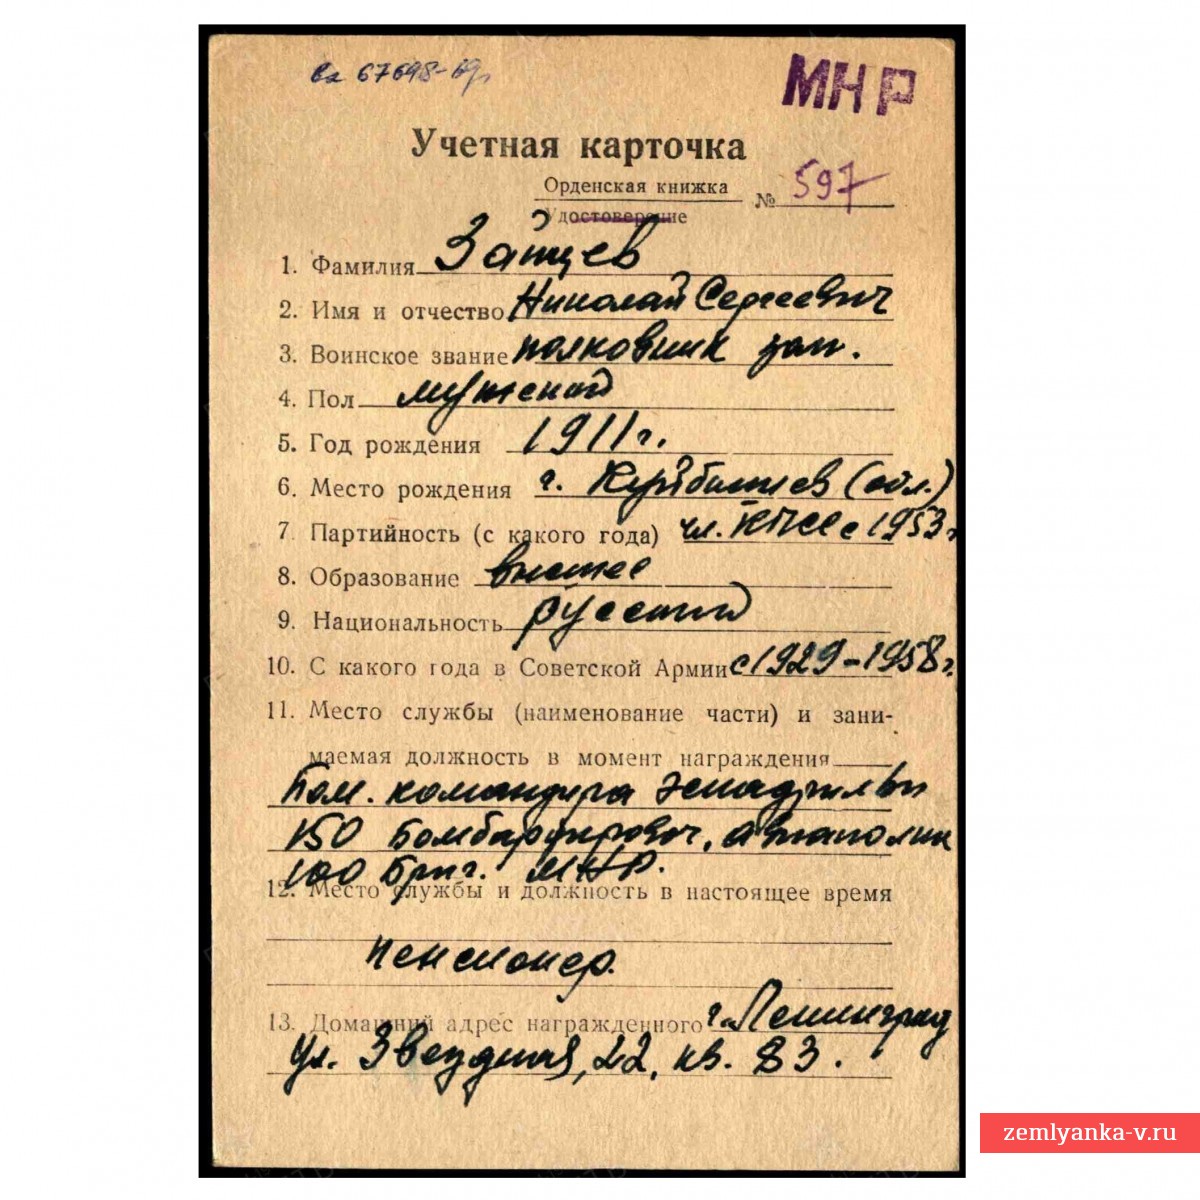 Вх 67698-69г
МНР
Учетная карточка
Орденская книжка
Удостоверение
№ 597
1. Фамилия Зайцев
2. Имя и отчество Николай Сергеевич
3. Воинское звание полковник зап.
4. Пол мужской
5. Год рождения 1911г.
6. Место рождения г. Куйбышев (обл.)
7 Партийность (с какого года) чл. КПСС с 1953г
8. Образование высшее
9. Национальность русский
10. С какого года в Советской Армии с 1929-1958г.
11. Место службы (наименование части) и зани-
маемая должность в момент награждения
Пом. командира эскадрильи
150 Бомбардировоч. авиаполк
100 Бриг. МНР.
12. Место службы и должность в настоящее время
пенсионер.
13. Домашний адрес награжденного г. Ленинград
ул. Звездная, 22, кв. 83.
zemlyanka-v.ru